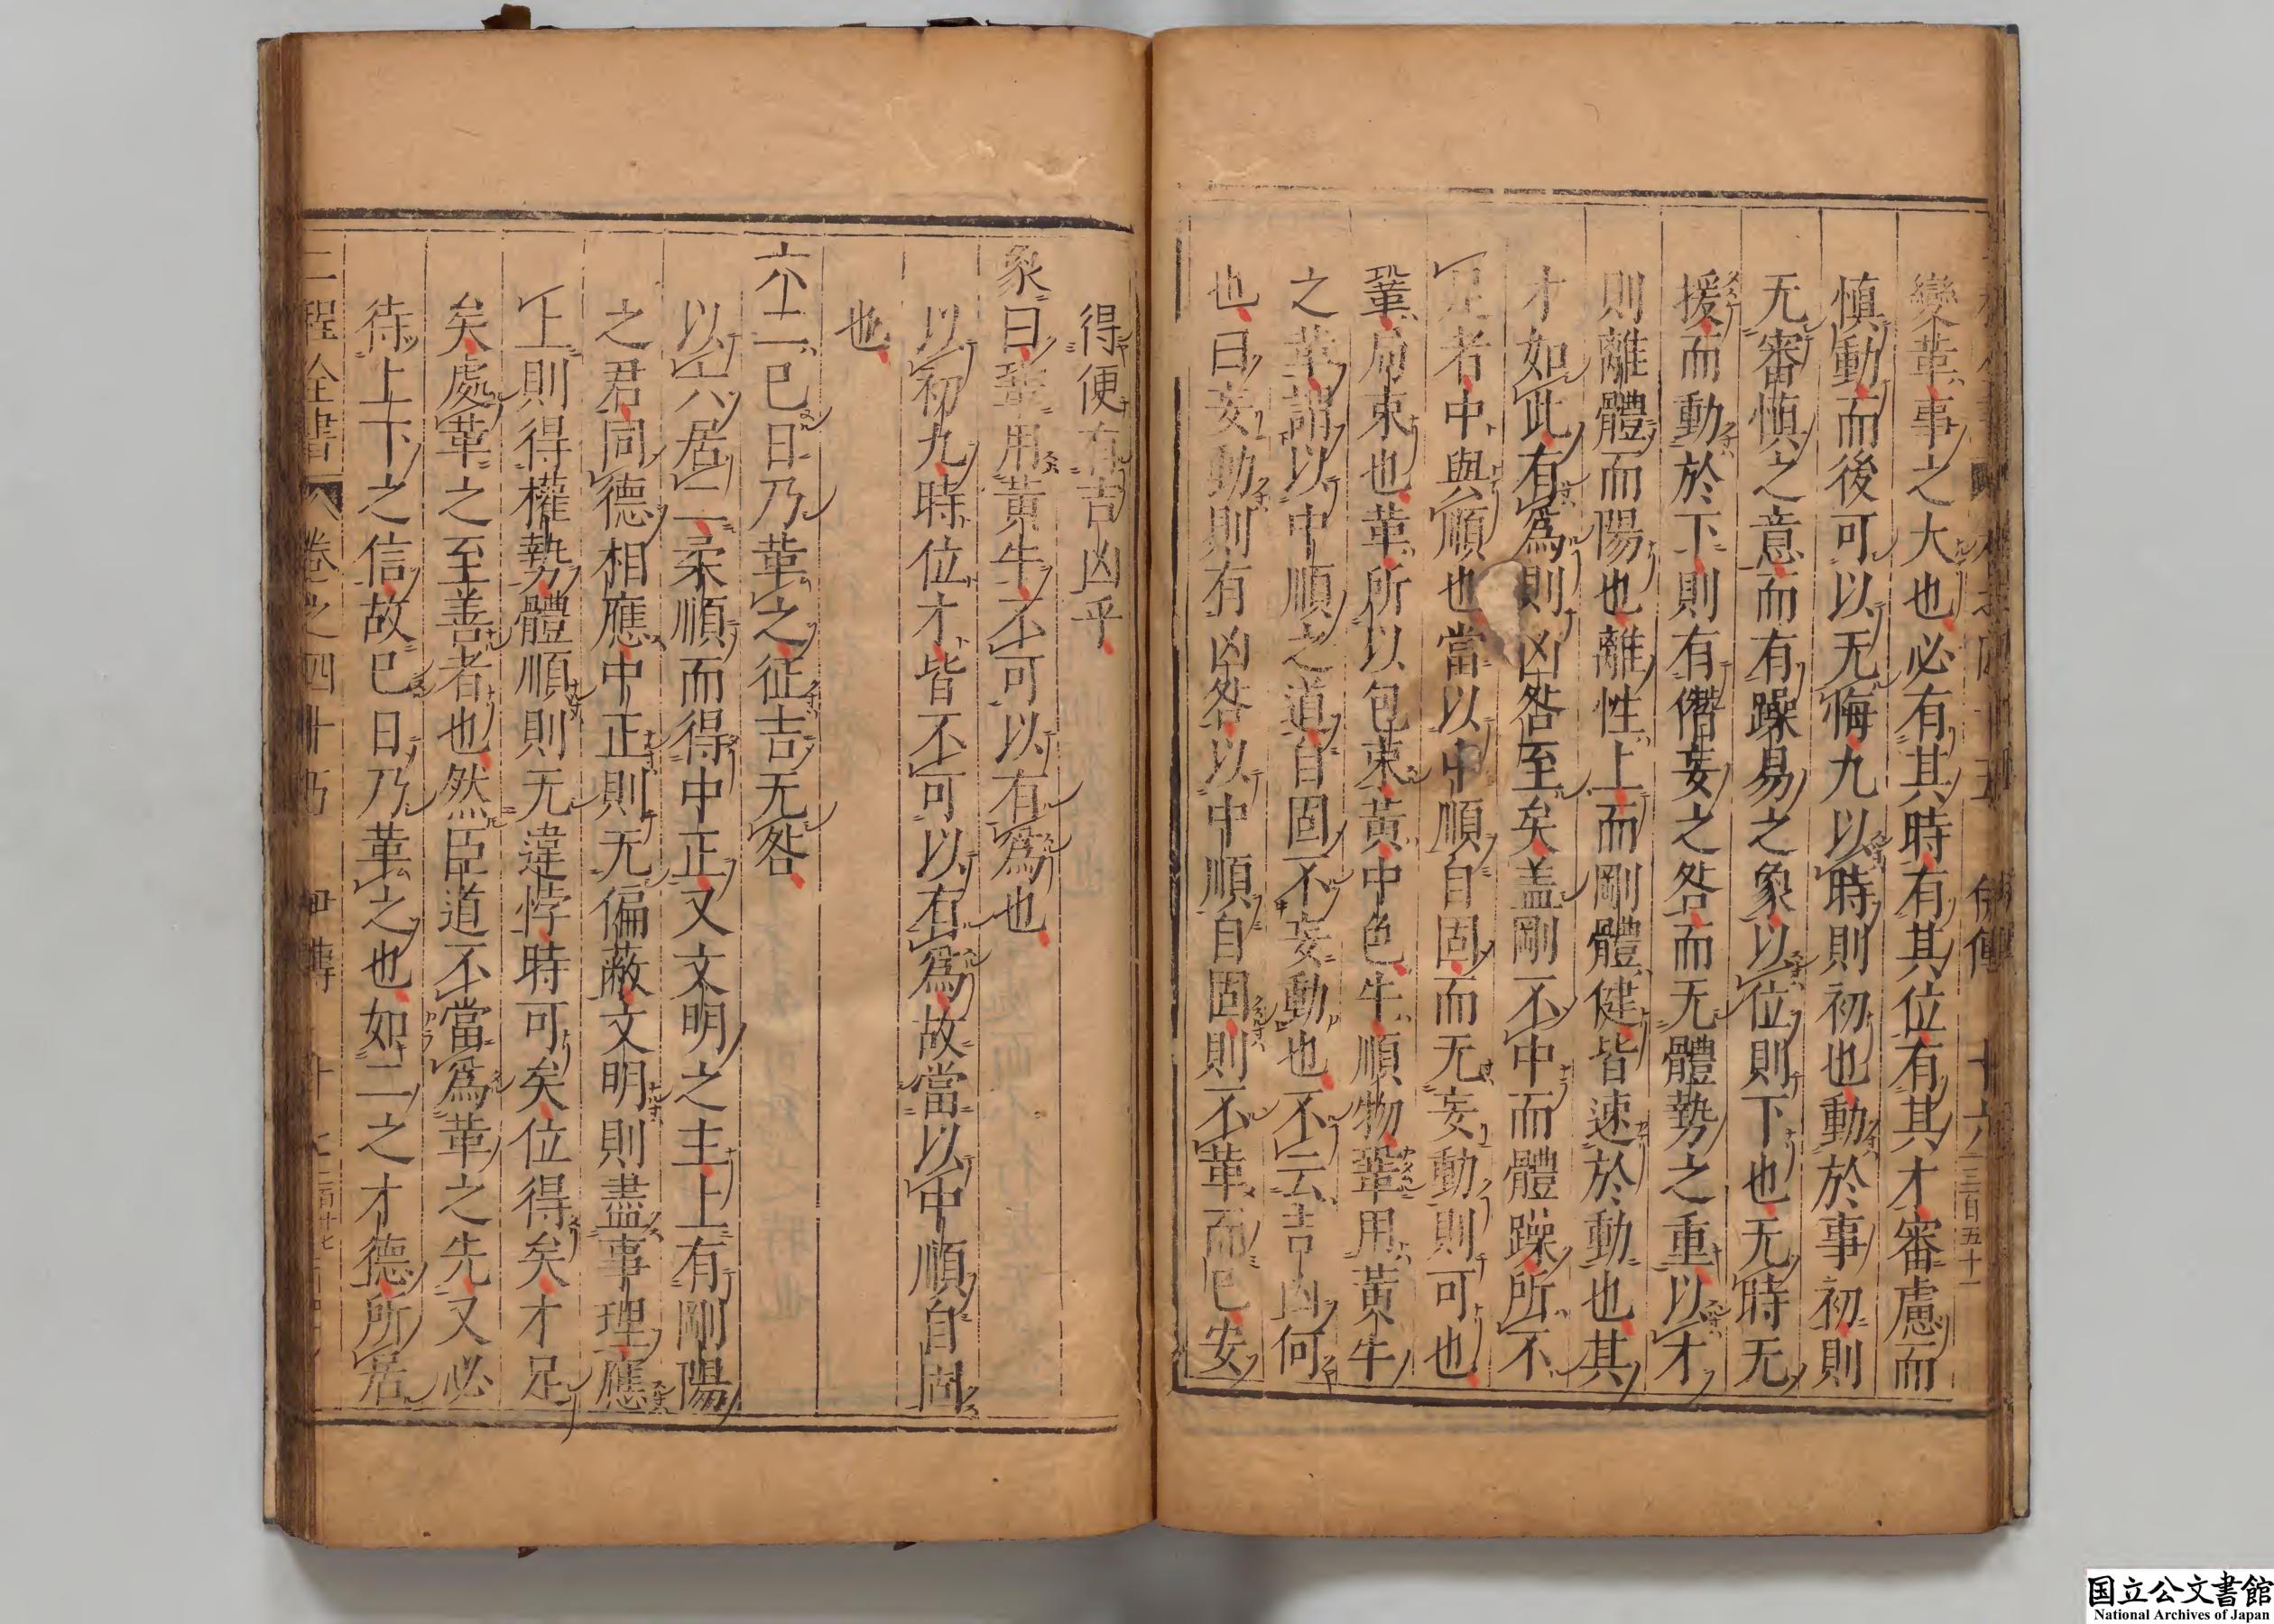 變革事之大也必有其時有其位有其才審慮而
慎動而後可以无悔九以時則初也動於事初則
无審慎之意而有躁易之象以位則下也无時无
援而動於下則有僭妄之咎而无體勢之重以才
則離體而陽也離性上而剛體健皆速於動也其
才如此有爲則凶咎至矣盖剛不中而體躁所不
足者中與順也當以中順自固而无妄動則可也
鞏局束也革所以包束黃中色牛順物鞏用黃牛
之革謂以中順之道自固不妄動也不云吉凶何
也曰妄動則有凶咎以中順自固則不革而已安
得便有吉凶乎
象曰鞏用黃牛不可以有爲也
以初九時位才皆不可以有爲故當以中順自固
也
六二巳日乃革之征吉无咎
以六居二柔順而得中正又文明之主上有剛陽
之君同德相應中正則无偏蔽文明則盡事理應
上則得權勢體順則无違悖時可矣位得矣才足
矣處革之至善者也然臣道不當爲革之先又必
待上下之信故巳日乃革之也如二之才德所居
二程全書 卷之四十五
国立公文書館
National Archives of Japan